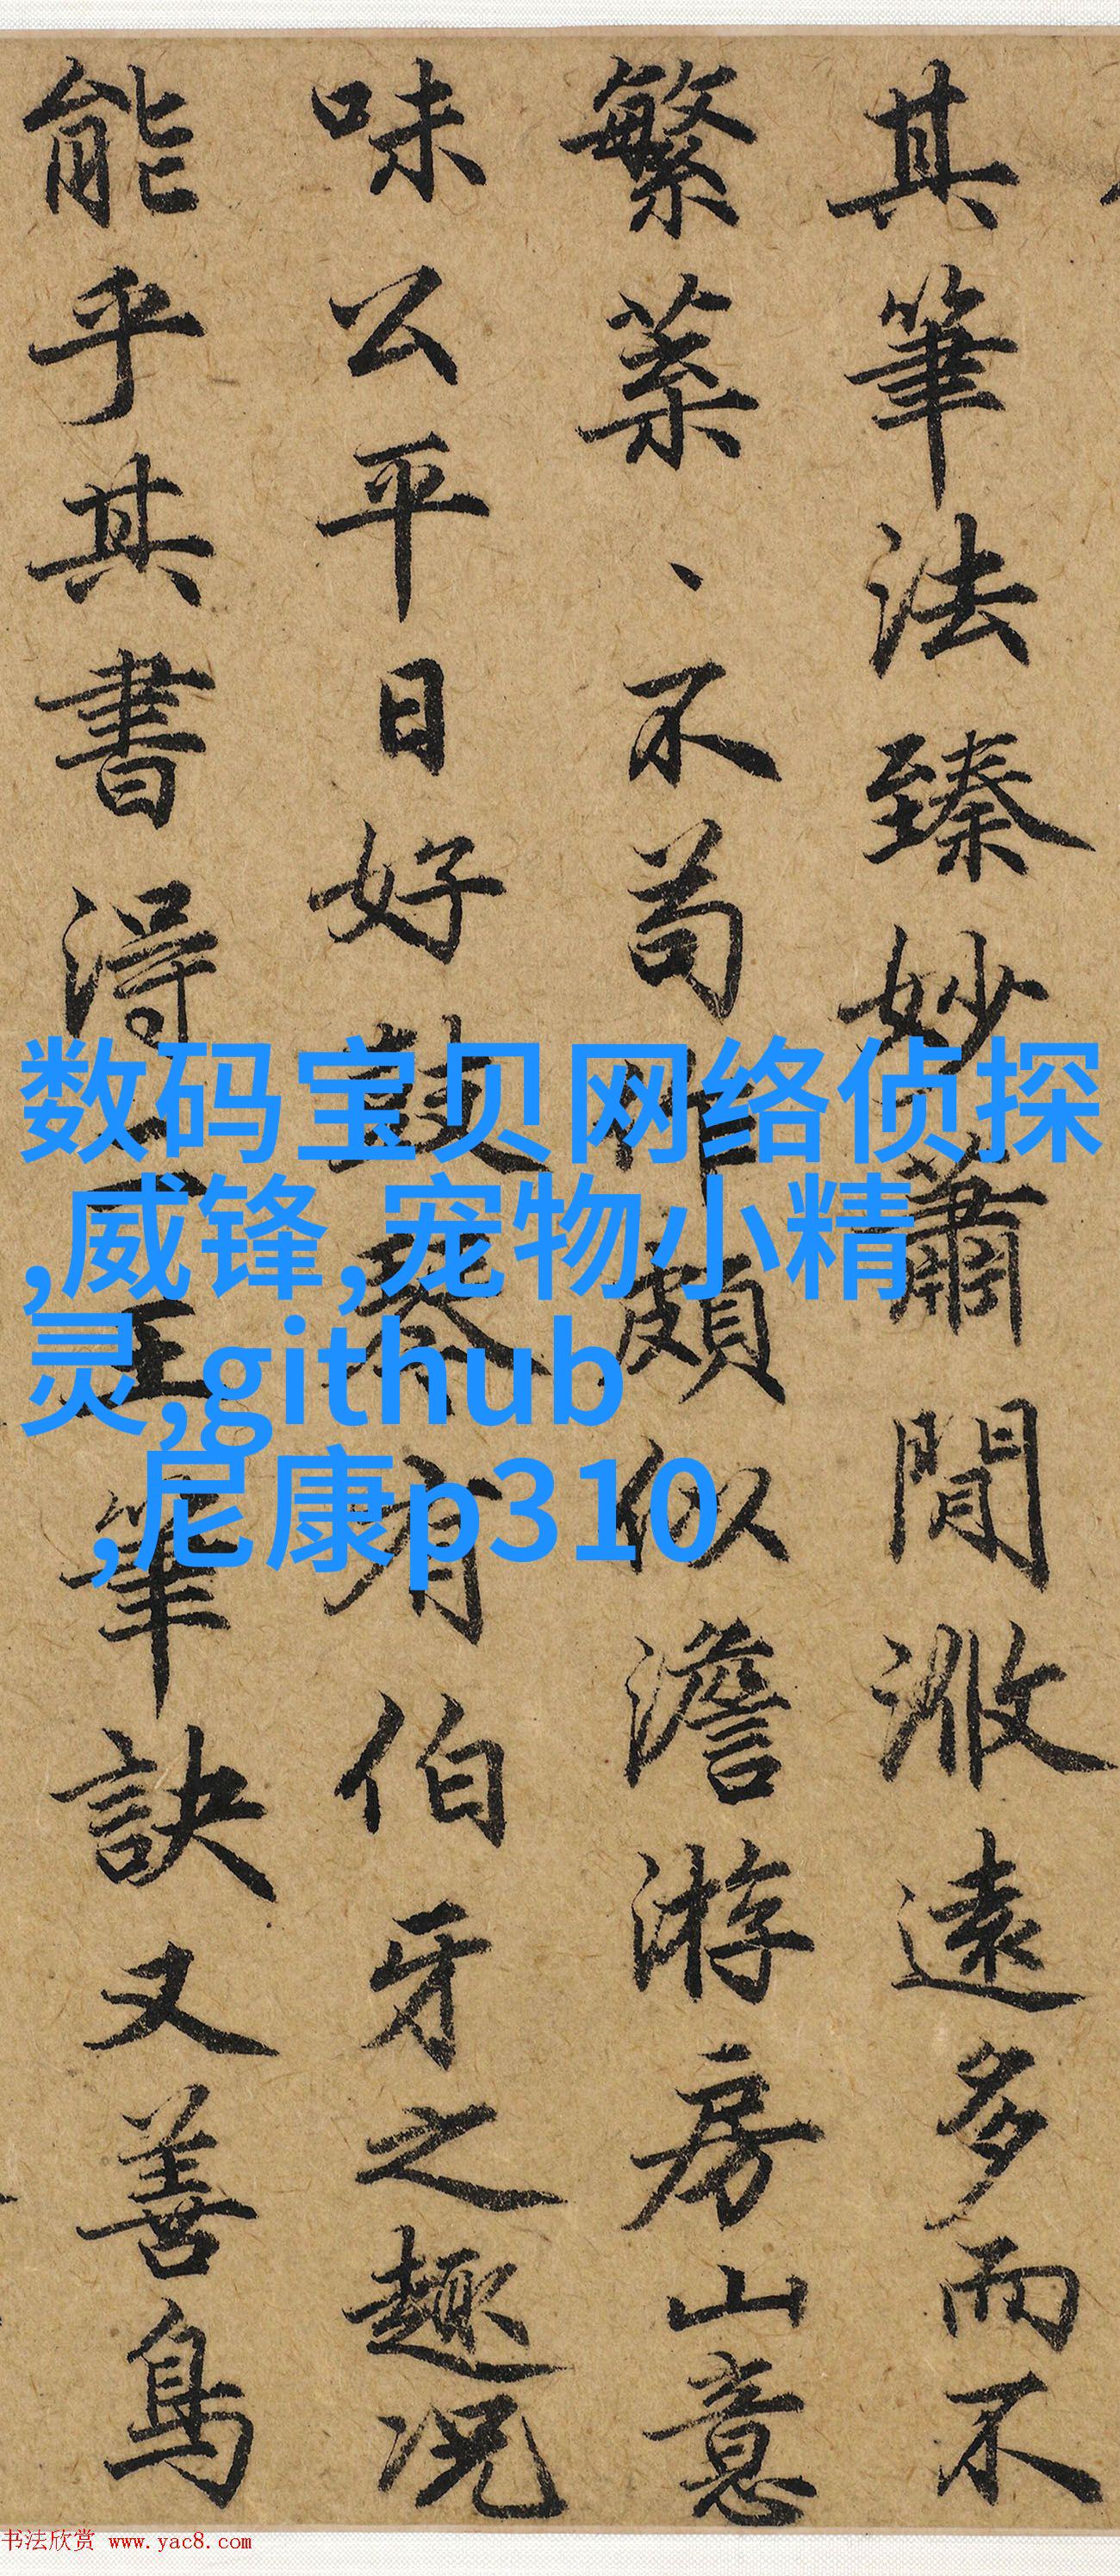 其筆法臻妙蕭閒㴚遠多而不
繁葉、不苟作頗似澹游房山意
味公平日好鼓琴有伯牙之趣况
能乎其書得二王筆訣又善鳥
数码宝贝网络侦探
,威锋,宠物小精
灵,github
,尼康p310
书法欣赏 www.yac8.com